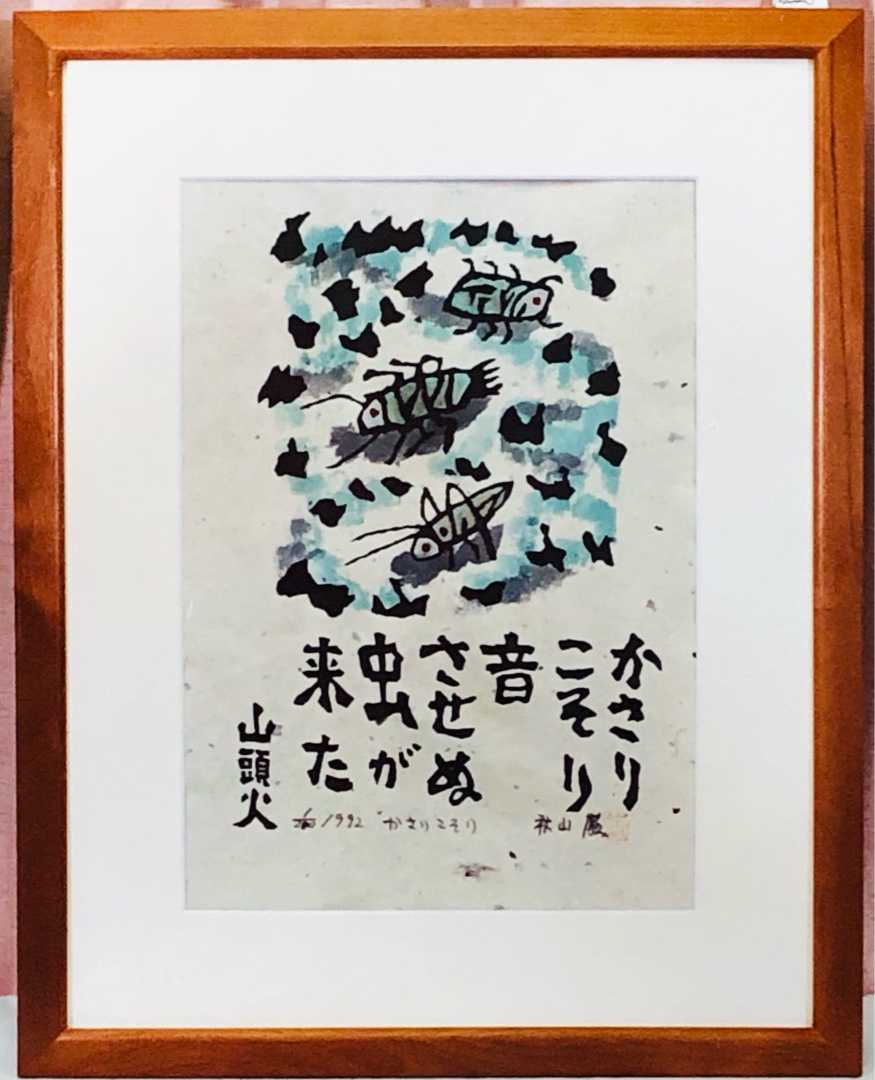 かさり
こそり
音
させぬ
虫が
来た
山頭火
1992 かさりこそり 秋山巌